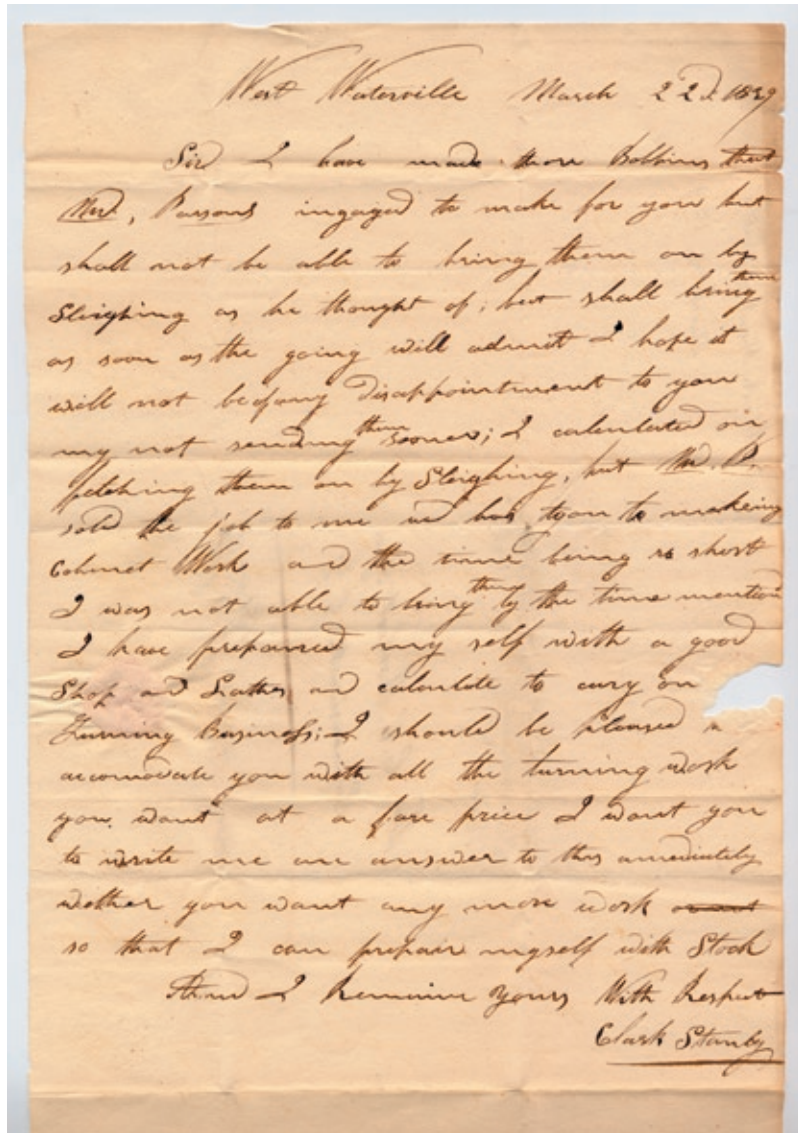 West Waterville March 22d. 1839
Sir I have made those Bobbins that
Mr. Parsons ingaged to make for you but
shall not be able to bring them on by
Sleighing as he thought of; but shall bring them
as soon as the going will admit I hope it
will not be any disappointment to you
my not sending them sooner; I calculated on
fetching them on by Sleighing, but Mr. P.
sold the job to me and has gon to makeing
Cabinet Work and the time being so short
I was not able to bring them by the time mention
I have prepaired my self with a good
Shop and Lathes and calculate to cary on
Turning Business; I should be pleased
accomodate you with all the turning work
you want at a fare price I want you
to write me an answer to this amediately
wether you want any more work
so that I can prepair myself with Stock
And I Remaine yours With Respect
Clark Stanly